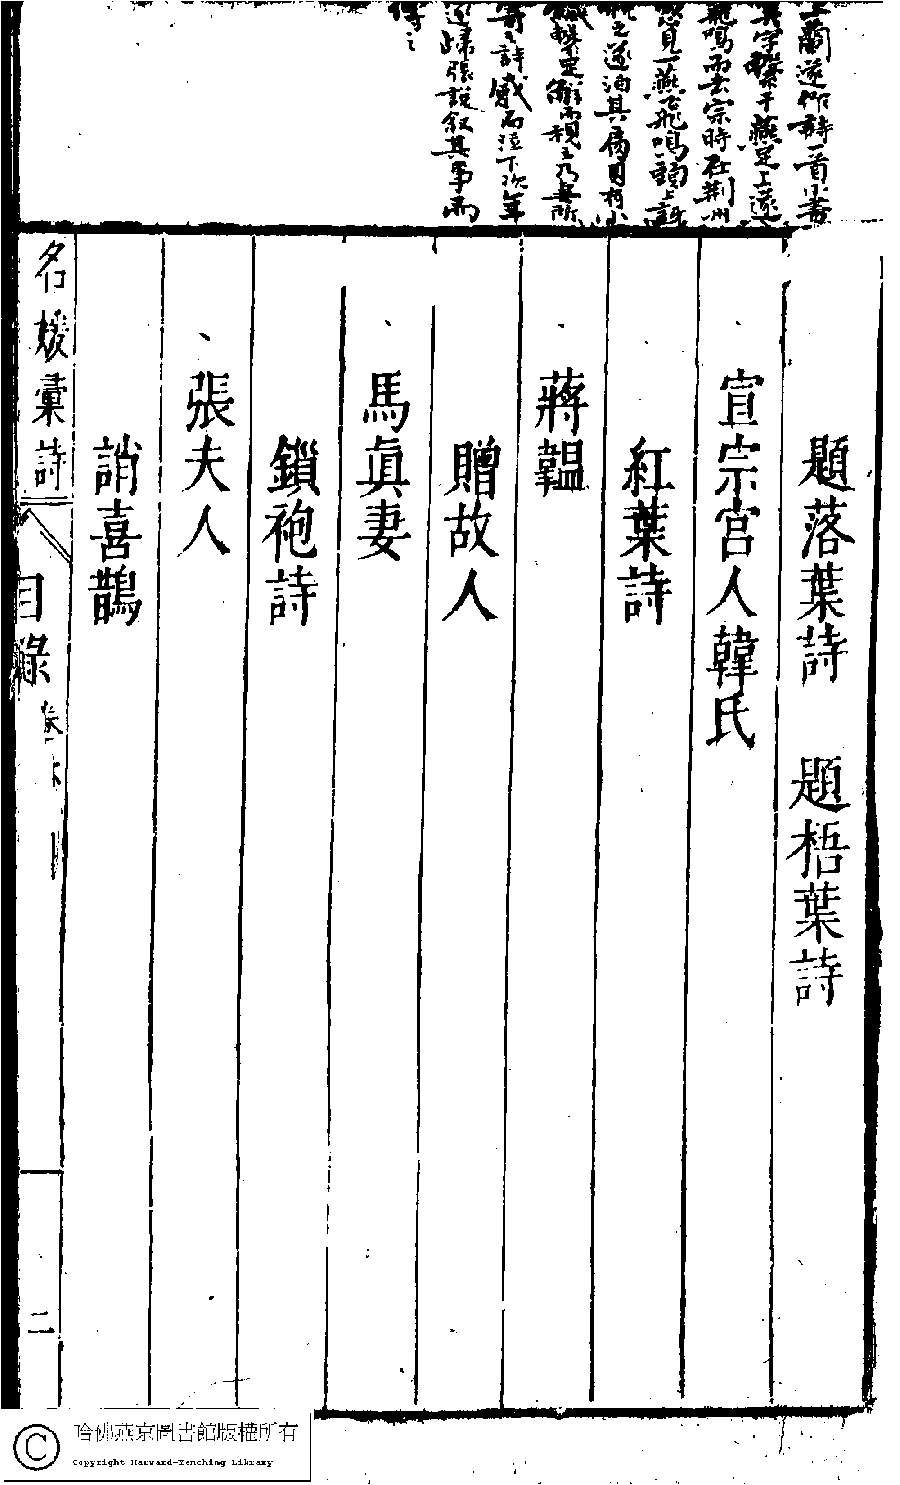 蘭遂作詩一首小書
其字繫于燕足上遂
飛鳴而去宗時在荆州
忽見一燕飛鳴頭上訝
之遂泊其肩見有小
緘繫足解而視之乃妻所
寄之詩感而泣下次年
遂歸張說叙其事而
傳之
題落葉詩　題梧葉詩
宣宗宮人韓氏
紅葉詩
蔣韞
贈故人
馬眞妻
鎖袍詩
張夫人
誚喜鵲
名媛彙詩　目錄　卷　二
哈佛燕京圖書館版權所有
© Copyright Harvard-Yenching Library